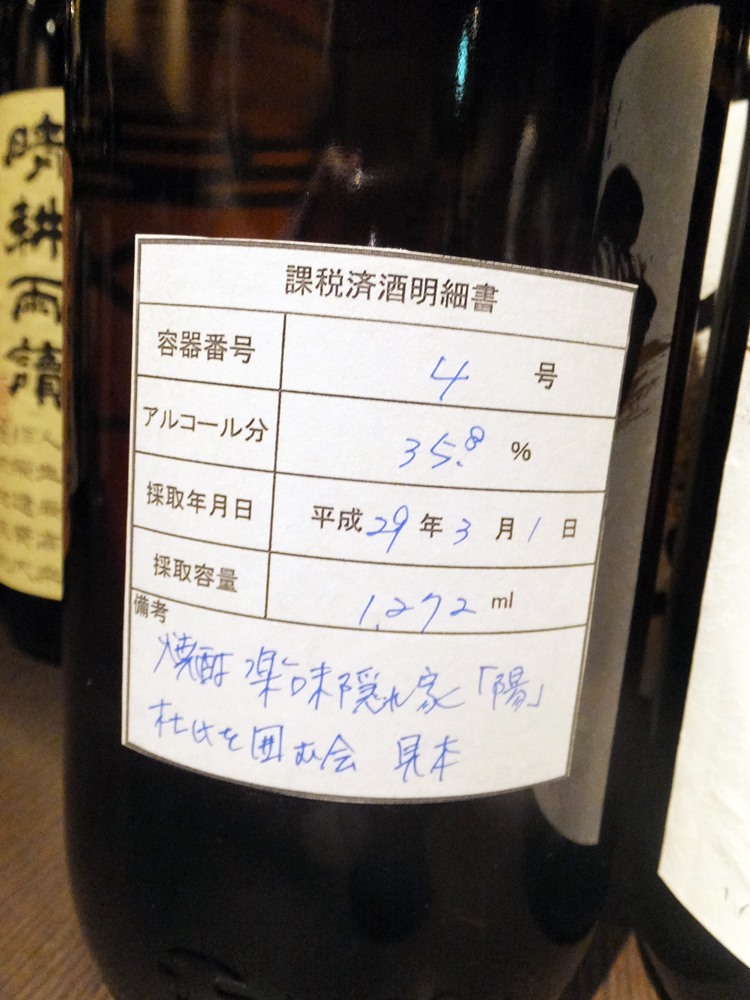 晴耕雨讀
課税済酒明細書
容器番号 4 号
アルコール分 35.8 %
採取年月日 平成29年3月1日
採取容量 1,272 ml
備考
焼酎 楽味隠れ家「陽」
杜氏を囲む会 見本